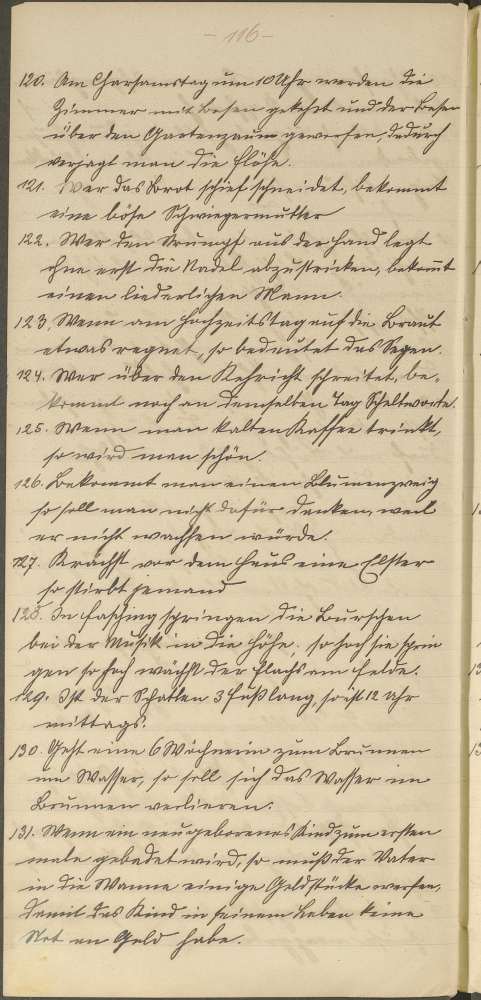 - 116 -
120. Am Charsamstag um 10 Uhr werden die
Zimmer mit Besen gekehrt und der Besen
über den Gartenzaum geworfen, dadurch
verjagt man die Flöhe.
121. Wer das Brot schief schneidet, bekommt
eine böse Schwiegermutter
122. Wer den Strumpf aus der Hand legt
ohne erst die Nadel abzustricken, bekom̅t
einen liederlichen Mann.
123. Wenn am Hochzeitstag auf die Braut
etwas regnet, so bedeutet das Segen.
124. Wer über den Kehricht schreitet, be-
kommt noch an demselben Tag Scheltworte.
125. Wenn man kalten Kaffee trinkt,
so wird man schön.
126. Bekommt man einen Blumenzweig
so soll man nicht dafür danken, weil
er nicht wachsen würde.
127. Krächzt vor dem Haus eine Elster
so stirbt jemand
128. In Fasching springen die Burschen
bei der Musik in die Höhe; so hoch sie sprin
gen so hoch wächst der Flachs am Felde.
129. Ist der Schatten 3 Fuß lang, so ist 12 Uhr
mittags.
130. Geht eine 6 Wöchnerin zum Brunnen
um Wasser, so soll sich das Wasser im
Brunnen verlieren.
131. Wenn ein neugeborenes Kind zum ersten
male gebadet wird, so muß der Vater
in die Wanne einige Geldstücke werfen,
damit das Kind in seinem Leben keine
Not an Geld habe.